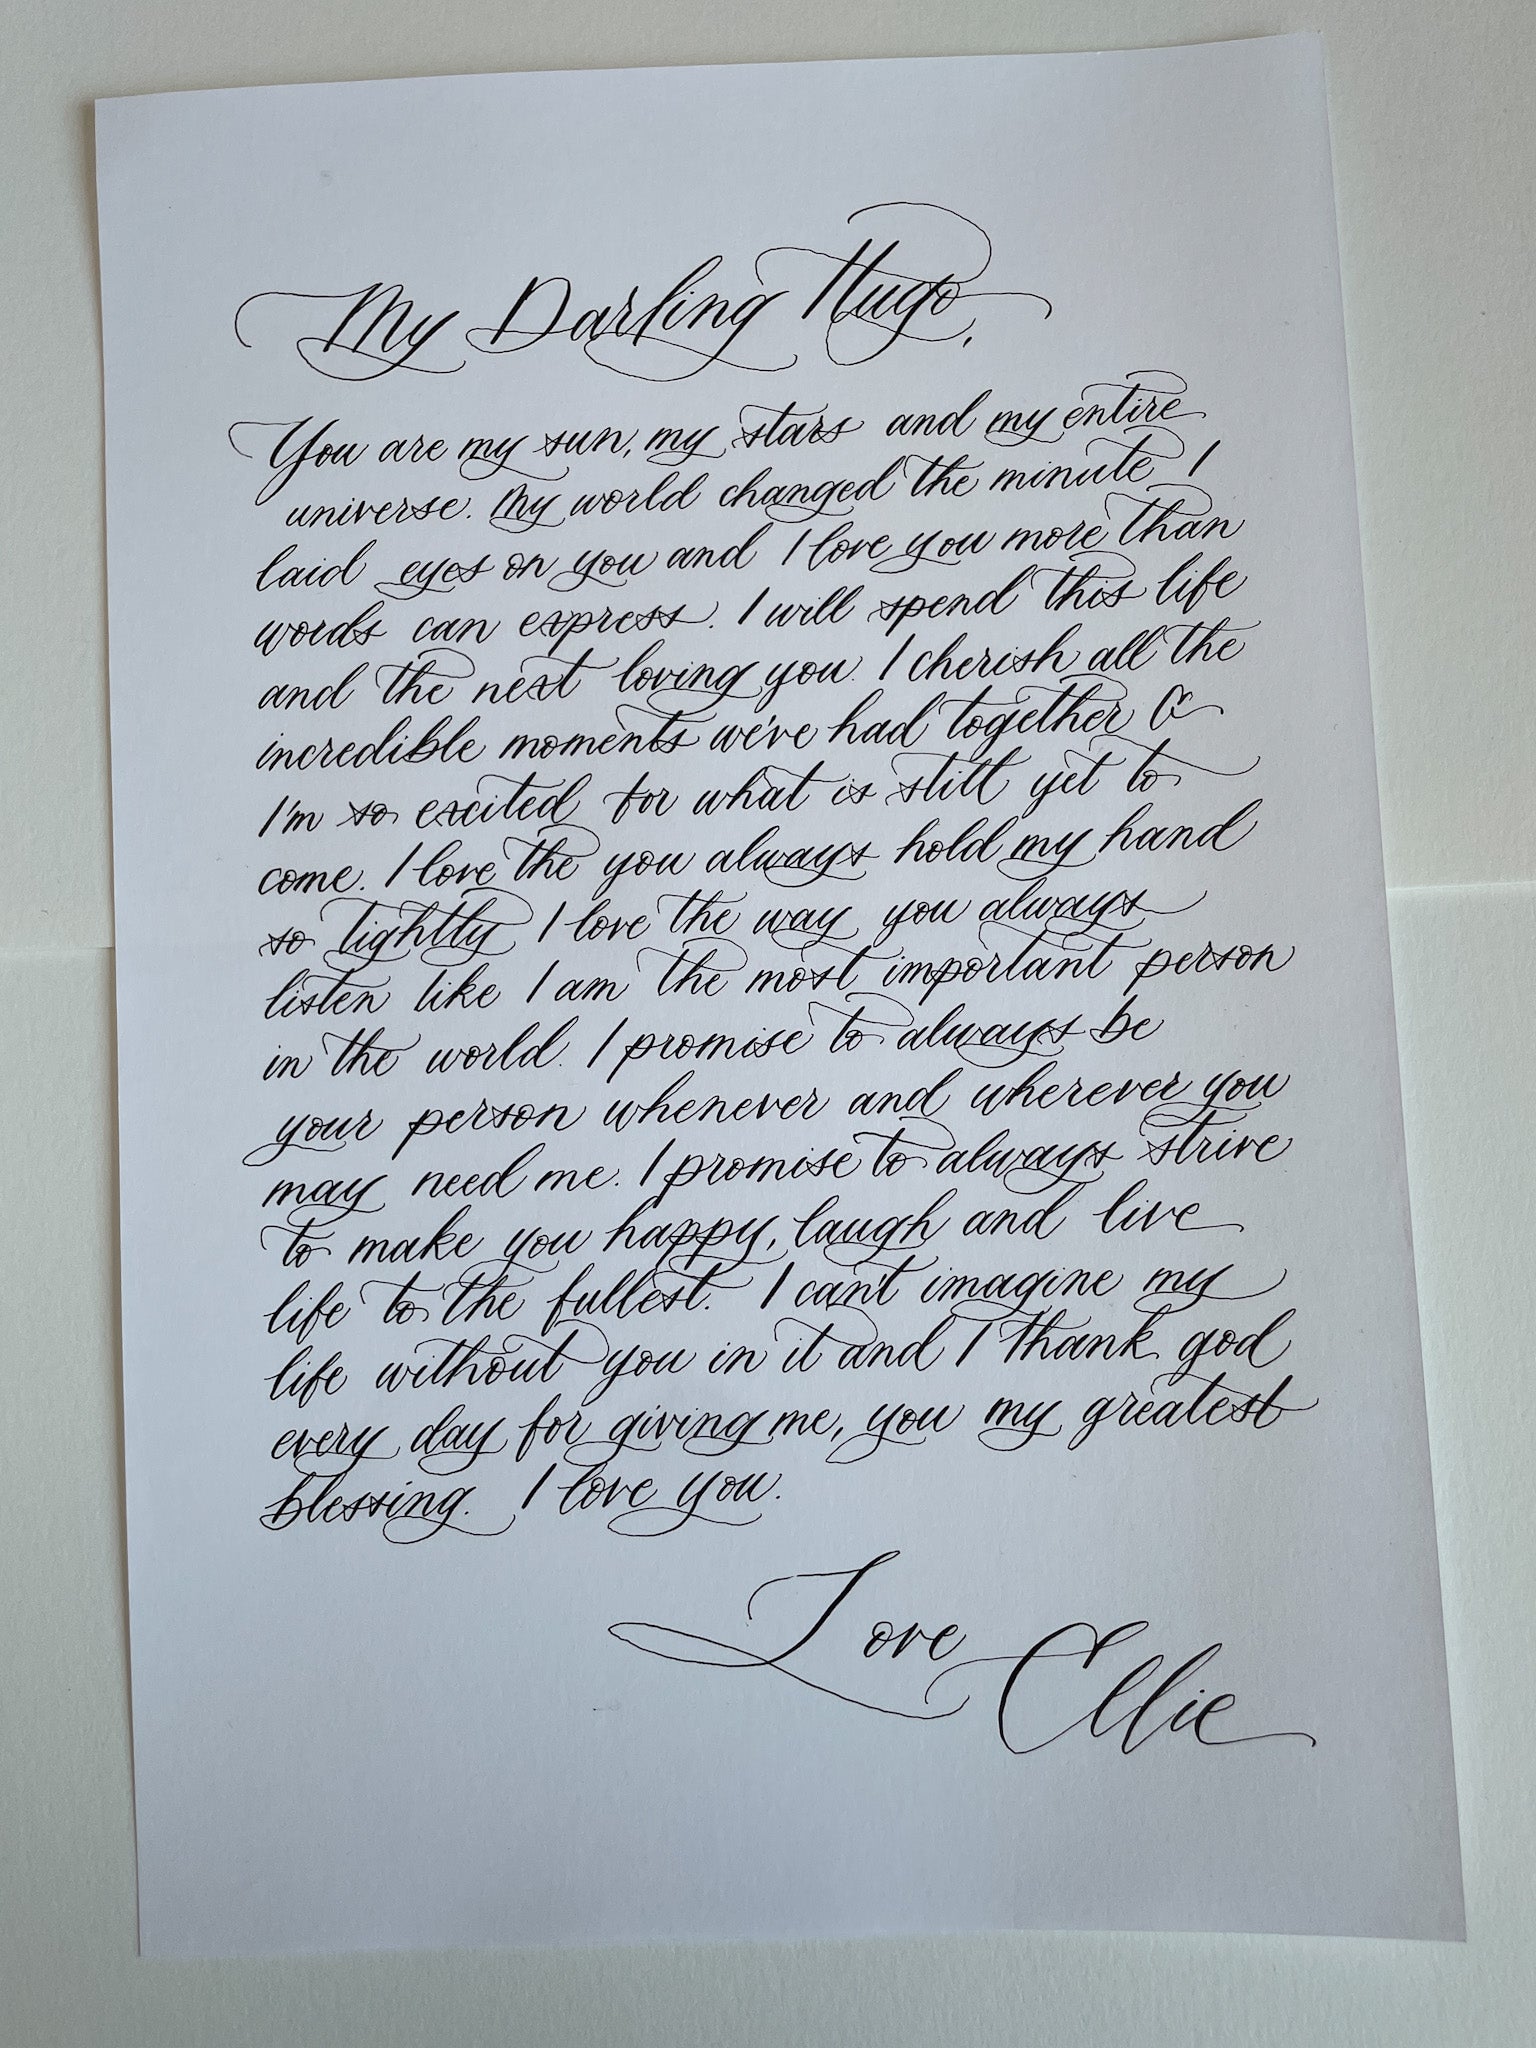 My Darling Hugo,
You are my sun, my stars and my entire
universe. My world changed the minute I
laid eyes on you and I love you more than
words can express. I will spend this life
and the next loving you. I cherish all the
incredible moments we've had together &
I'm so excited for what is still yet to
come. I love the you always hold my hand
so tightly I love the way you always
listen like I am the most important person
in the world. I promise to always be
your person whenever and wherever you
may need me. I promise to always strive
to make you happy, laugh and live
life to the fullest. I can't imagine my
life without you in it and I thank god
every day for giving me, you my greatest
blessing. I love you.
Love
Ellie